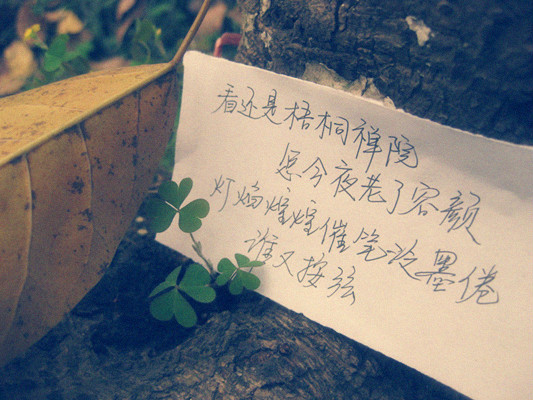 看还是梧桋禅院
怎今夜老了容颜
灯焰煌煌催笔冷墨倦
谁又按弦